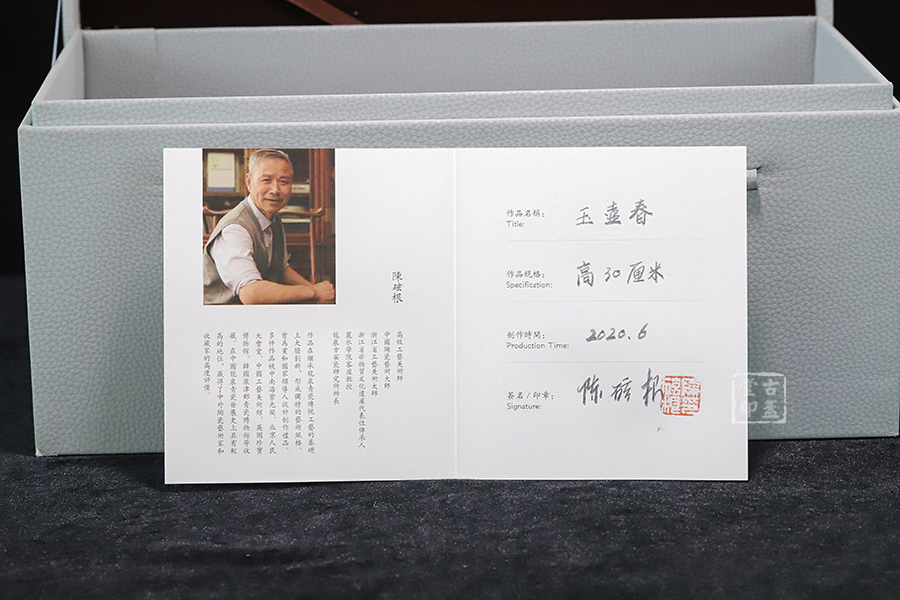 陳磁根
高級工藝美術師
中國陶瓷藝術大師
浙江省工藝美術大師
浙江省非物質文化遺產代表性傳承人
麗水學院客座教授
龍泉古窯瓷研究所所長
作品在繼承龍泉青瓷傳統工藝的基礎
上大膽創新，形成獨特的藝術風格。
曾爲黨和國家領導人設計制作禮品。
多件作品被中南海紫光閣、北京人民
大會堂、中國工藝美術館、英國珍寶
博物館、韓國康津郡青瓷博物館等收
藏，在中國龍泉青瓷發展史上具有較
高的地位，贏得了中外陶瓷藝術家和
收藏家的高度評價。
作品名稱： 玉壶春
Title:
作品規格： 高30厘米
Specification:
制作時間： 2020.6
Production Time:
簽名/印章： 陈磁根
Signature:
古盏
堂印